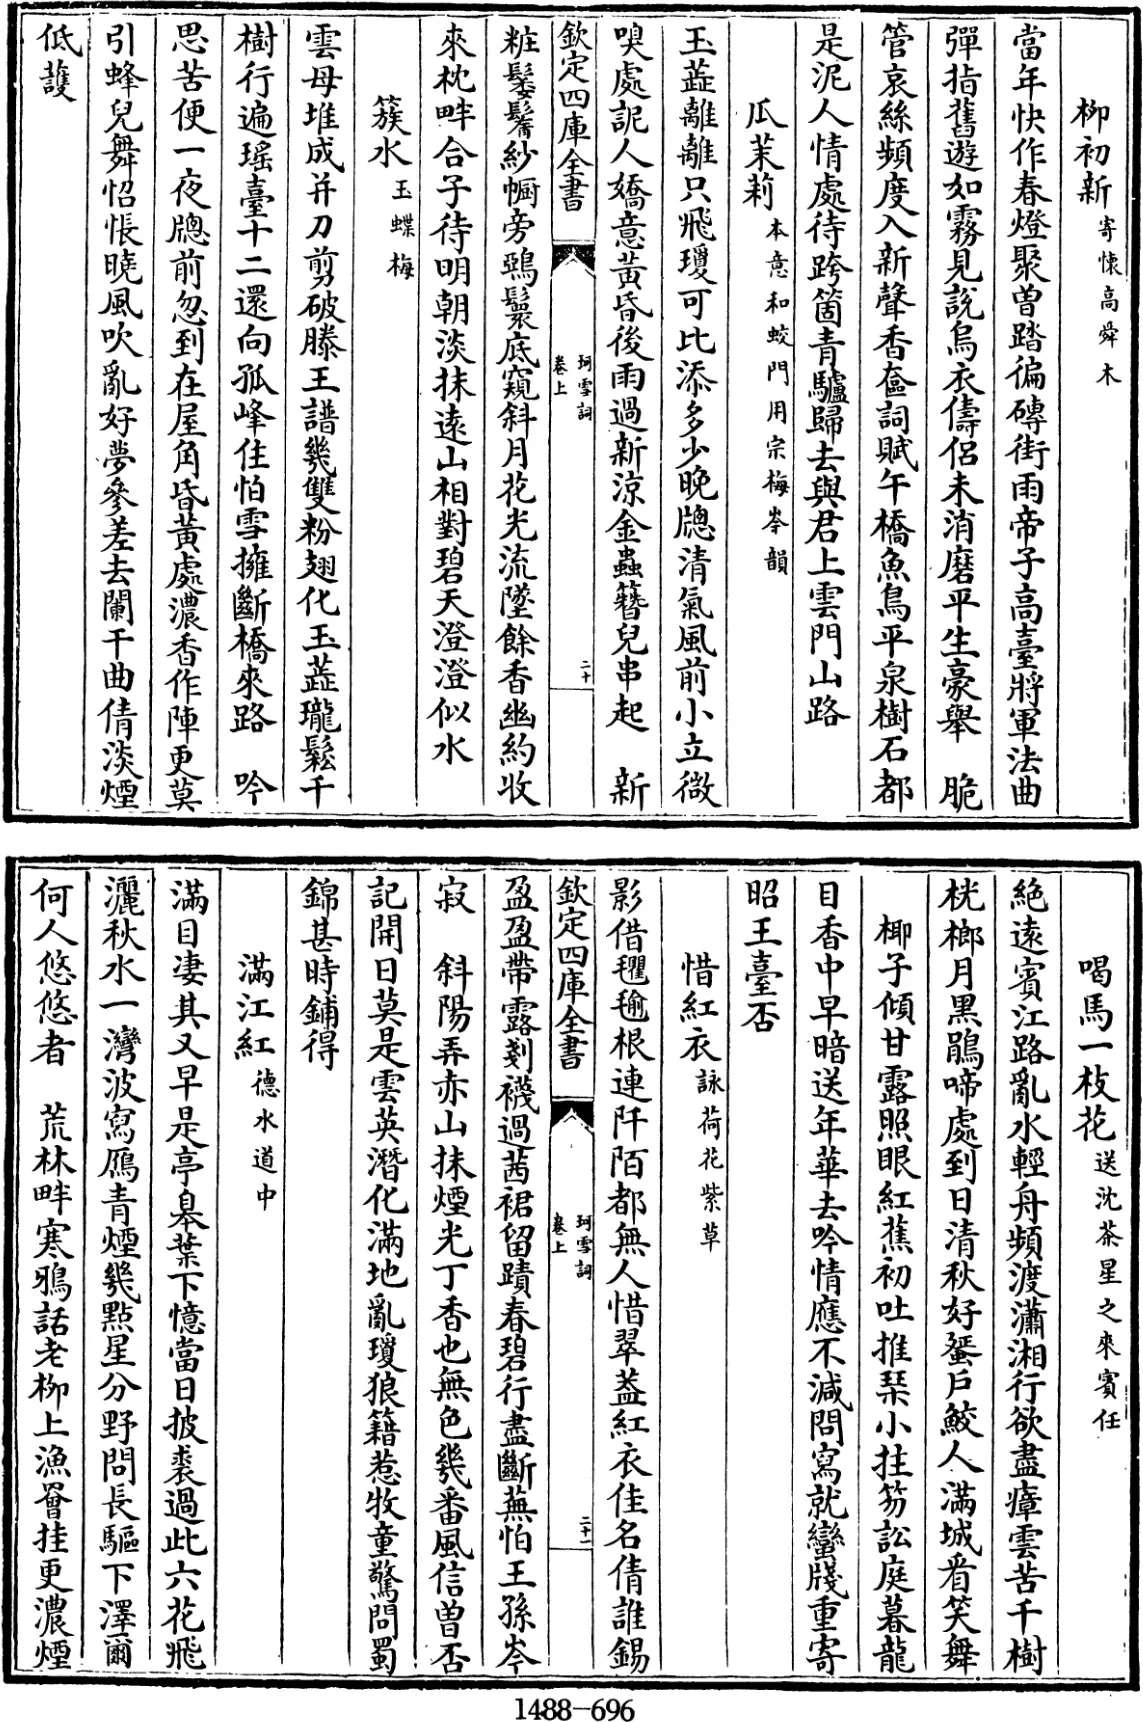 柳初新寄懷高舜木
當年快作春燈聚曽踏徧磚街雨帝子高臺將軍法曲
彈指舊遊如霧見說烏衣儔侶未消磨平生豪舉　脆
管哀絲頻度入新聲香奩詞賦午橋魚鳥平泉樹石都
是泥人情處待跨箇青驢歸去與君上雲門山路
瓜茉莉本意和蛟門用宗梅岑韻
玉蕋離離只飛瓊可比添多少晚牎清氣風前小立微
嗅處詑人嬌意黃昏後雨過新涼金蟲簪兒串起　新
欽定四庫全書
珂雪詞
卷上
二十
粧鬖鬌紗㡡旁鵶鬟底窺斜月花光流墜餘香幽約收
來枕畔合子待明朝淡抹逺山相對碧天澄澄似水
簇水玉蝶梅
雲母堆成并刀剪破滕王譜幾雙粉翅化玉蕋瓏鬆千
樹行遍瑶臺十二還向孤峰住怕雪擁斷橋來路　吟
思苦便一夜牎前忽到在屋角昏黃處濃香作陣更莫
引蜂兒舞怊悵曉風吹亂好夢參差去闌干曲倩淡煙
低䕶
喝馬一枝花送沈茶星之來賓任
絶遠賓江路亂水輕舟頻渡瀟湘行欲盡瘴雲苦千樹
桄榔月黑鵑啼處到日清秋好蜑戶鮫人滿城看笑舞
椰子傾甘露照眼紅蕉初吐推琹小拄笏訟庭暮龍
目香中早暗送年華去吟情應不減問寫就蠻牋重寄
昭王臺否
惜紅衣詠荷花紫草
影借氍毹根連阡陌都無人惜翠葢紅衣佳名倩誰錫
欽定四庫全書
珂雪詞
卷上
二十一
盈盈帶露剗襪過茜裙留蹟春碧行盡斷蕪怕王孫岑
寂　斜陽弄赤山抹煙光丁香也無色幾番風信曽否
記開日莫是雲英潛化滿地亂瓊狼籍惹牧童驚問蜀
錦甚時鋪得
滿江紅德水道中
滿目淒其又早是亭臯葉下憶當日披裘過此六花飛
灑秋水一灣波寫鴈青煙幾點星分野問長驅下澤爾
何人悠悠者　荒林畔寒鴉話老柳上漁罾挂更濃煙
1488-696